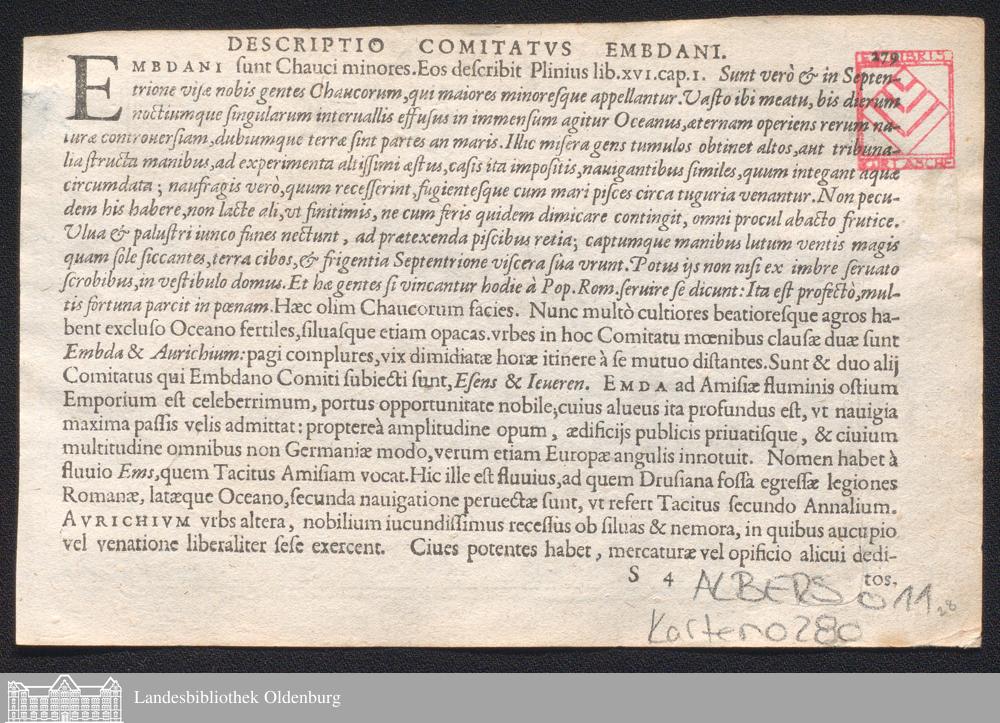 DESCRIPTIO COMITATVS EMBDANI.
279
EMBDANI ſunt Chauci minores. Eos deſcribit Plinius lib. XVI. cap. I. Sunt verò & in Septen-
trione viſæ nobis gentes Chaucorum, qui maiores minoreſque appellantur. Vaſto ibi meatu, bis dierum
noctiumque ſingularum interuallis effuſus in immenſum agitur Oceanus, æternam operiens rerum na-
turæ controuerſiam, dubiumque terræ ſint partes an maris. Illic miſera gens tumulos obtinet altos, aut tribuna-
lia ſtructa manibus, ad experimenta altiſſimi æſtus, caſis ita impoſitis, nauigantibus ſimiles, quum integant aquæ
circumdata; naufragis verò, quum receſſerint, fugienteſque cum mari piſces circa tuguria venantur. Non pecu-
dem his habere, non lacte ali, vt finitimis, ne cum feris quidem dimicare contingit, omni procul abacto frutice.
Vlua & paluſtri iunco funes nectunt, ad prætexenda piſcibus retia; captumque manibus lutum ventis magis
quam ſole ſiccantes, terra cibos, & frigentia Septentrione viſcera ſua vrunt. Potus ijs non niſi ex imbre ſeruato
ſcrobibus, in veſtibulo domus. Et hæ gentes ſi vincantur hodie à Pop. Rom. ſeruire ſe dicunt: Ita eſt profectò, mul-
tis fortuna parcit in pœnam. Hæc olim Chaucorum facies. Nunc multò cultiores beatioreſque agros ha-
bent excluſo Oceano fertiles, ſiluaſque etiam opacas. vrbes in hoc Comitatu mœnibus clauſæ duæ ſunt
Embda & Aurichium: pagi complures, vix dimidiatæ horæ itinere à ſe mutuo diſtantes. Sunt & duo alij
Comitatus qui Embdano Comiti ſubiecti ſunt, Eſens & Ieueren. EMDA ad Amiſiæ fluminis oſtium
Emporium eſt celeberrimum, portus opportunitate nobile; cuius alueus ita profundus eſt, vt nauigia
maxima paſſis velis admittat: proptereà amplitudine opum, ædificijs publicis priuatiſque, & ciuium
multitudine omnibus non Germaniæ modo, verum etiam Europæ angulis innotuit. Nomen habet à
fluuio Ems, quem Tacitus Amiſiam vocat. Hic ille eſt fluuius, ad quem Druſiana foſſa egreſſæ legiones
Romanæ, latæque Oceano, ſecunda nauigatione peruectæ ſunt, vt refert Tacitus ſecundo Annalium.
AVRICHIVM vrbs altera, nobilium iucundiſſimus receſſus ob ſiluas & nemora, in quibus aucupio
vel venatione liberaliter ſeſe exercent. Ciues potentes habet, mercaturæ vel opificio alicui dedi-
S 4 tos,
ALBERS 011 28
Karten 0280
EX LIBRIS
Landesbibliothek Oldenburg